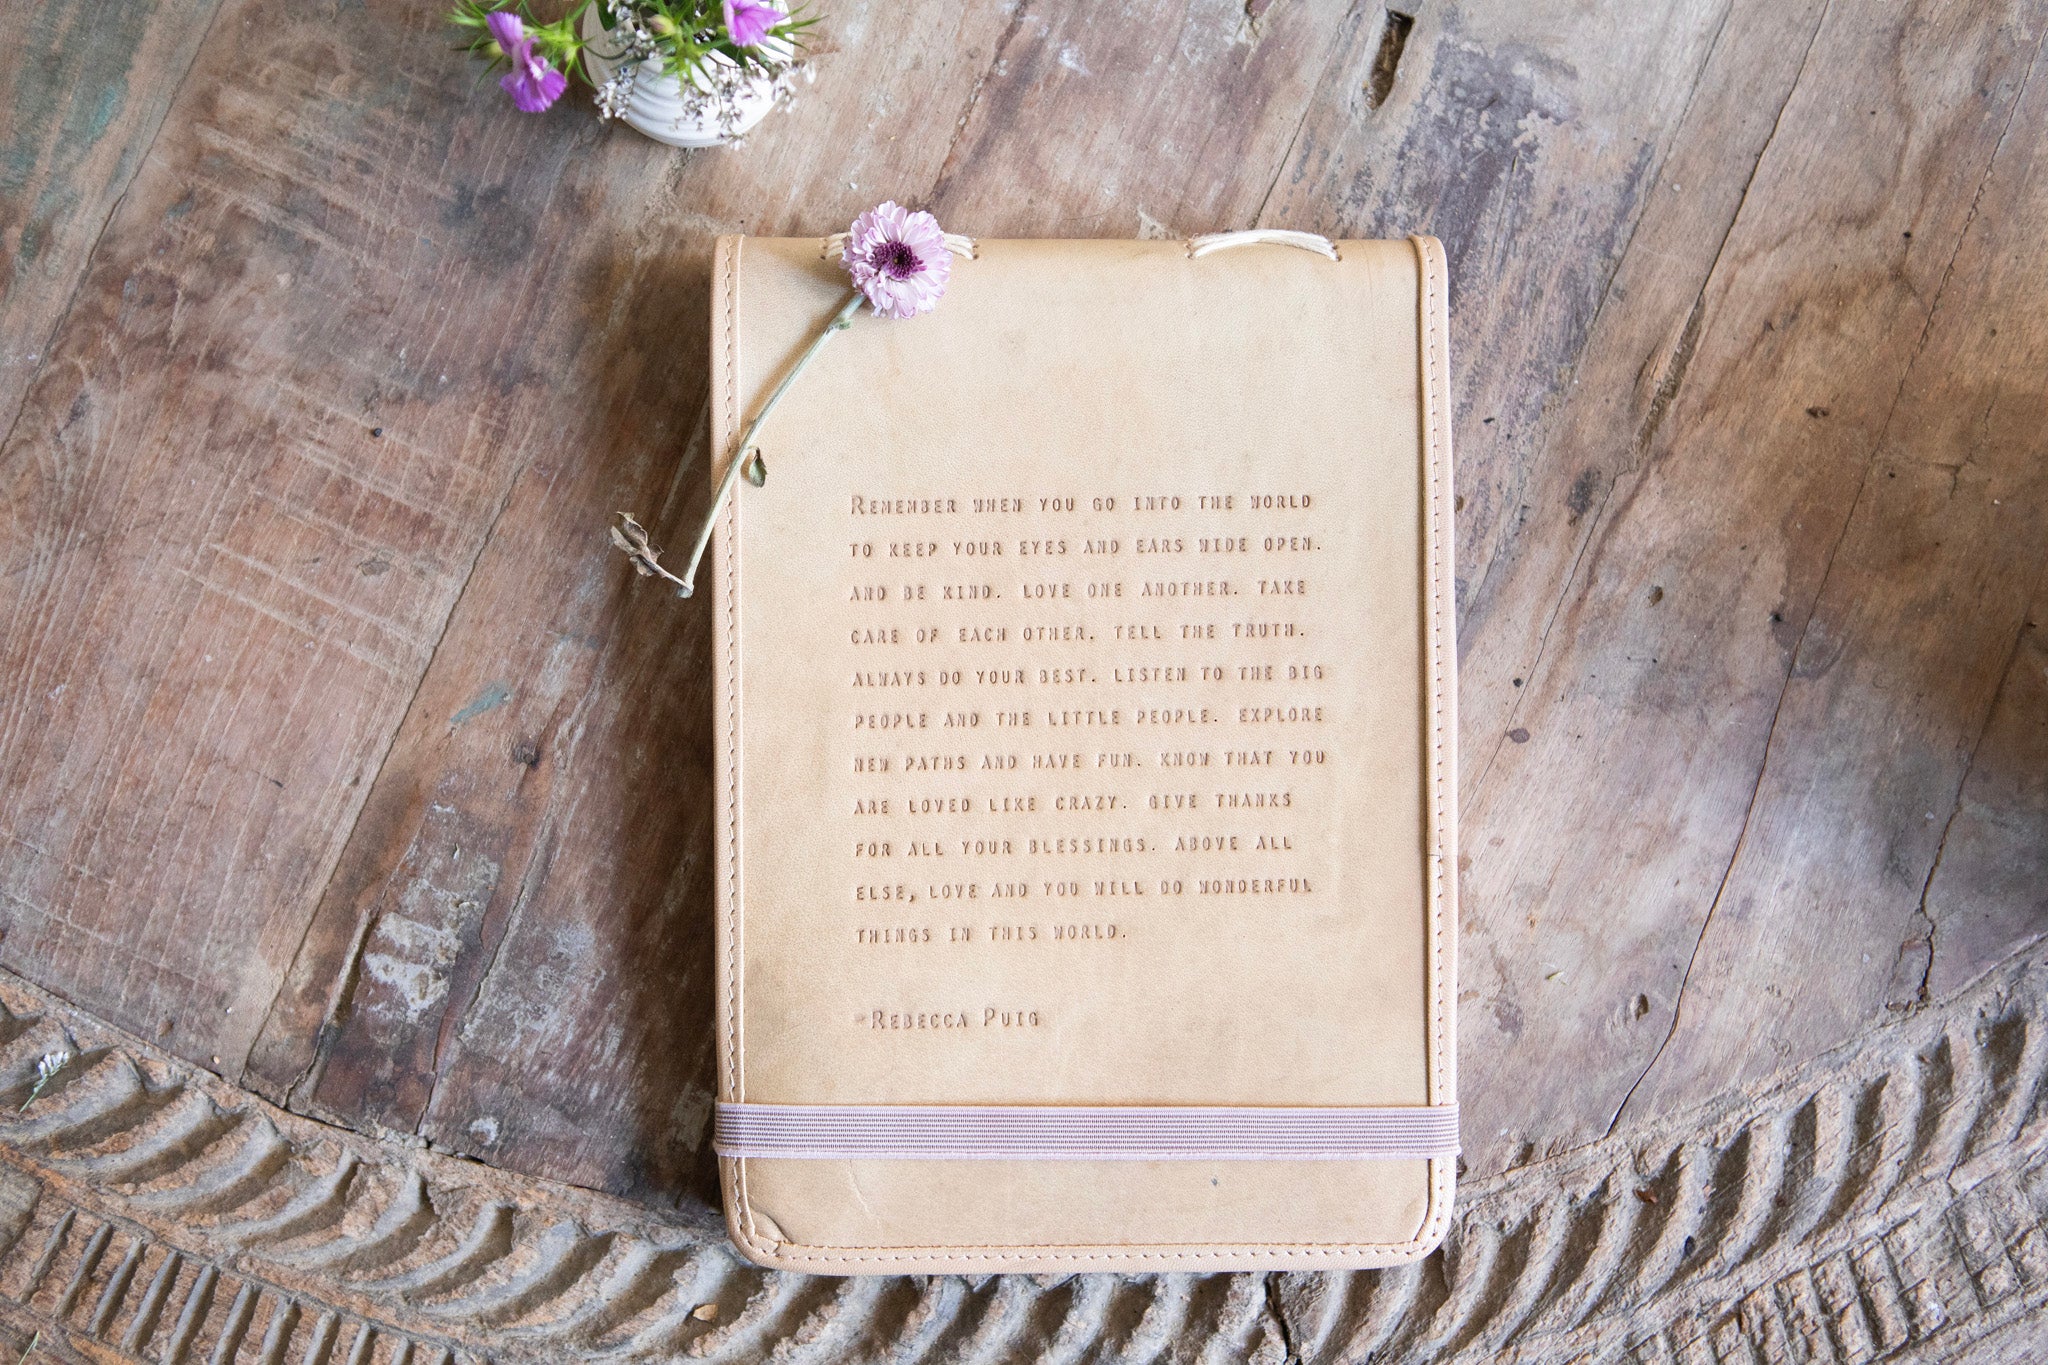 REMEMBER WHEN YOU GO INTO THE WORLD
TO KEEP YOUR EYES AND EARS WIDE OPEN.
AND BE KIND. LOVE ONE ANOTHER. TAKE
CARE OF EACH OTHER. TELL THE TRUTH.
ALWAYS DO YOUR BEST. LISTEN TO THE BIG
PEOPLE AND THE LITTLE PEOPLE. EXPLORE
NEW PATHS AND HAVE FUN. KNOW THAT YOU
ARE LOVED LIKE CRAZY. GIVE THANKS
FOR ALL YOUR BLESSINGS. ABOVE ALL
ELSE, LOVE AND YOU WILL DO WONDERFUL
THINGS IN THIS WORLD.
-REBECCA PUIG